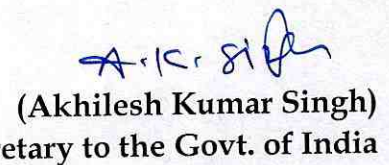 A.K. Singh
(Akhilesh Kumar Singh)
retary to the Govt. of India